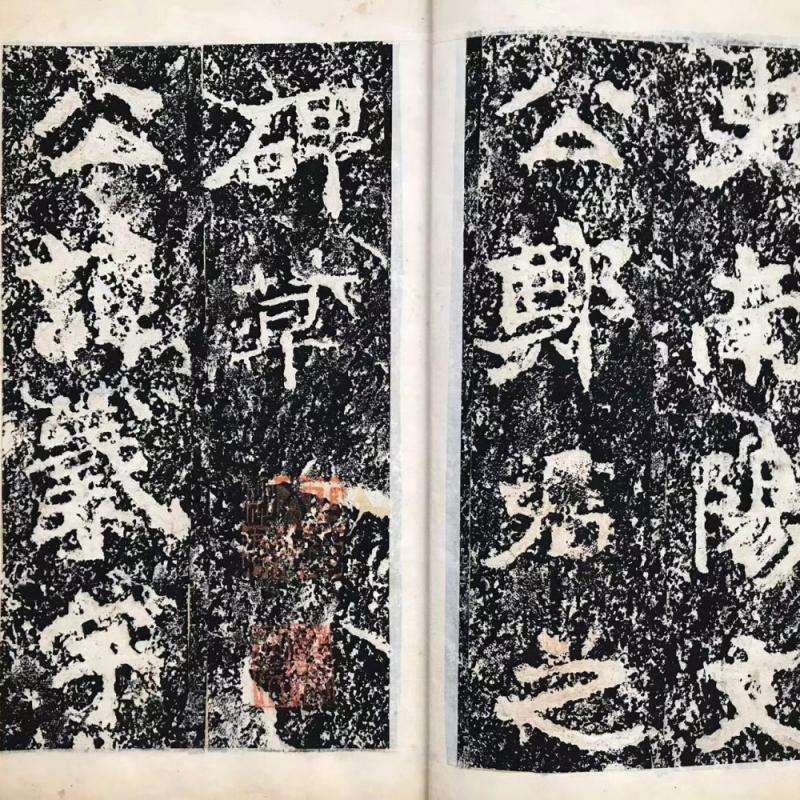 史南陽文
公鄭君之
碑草
公諱羲字